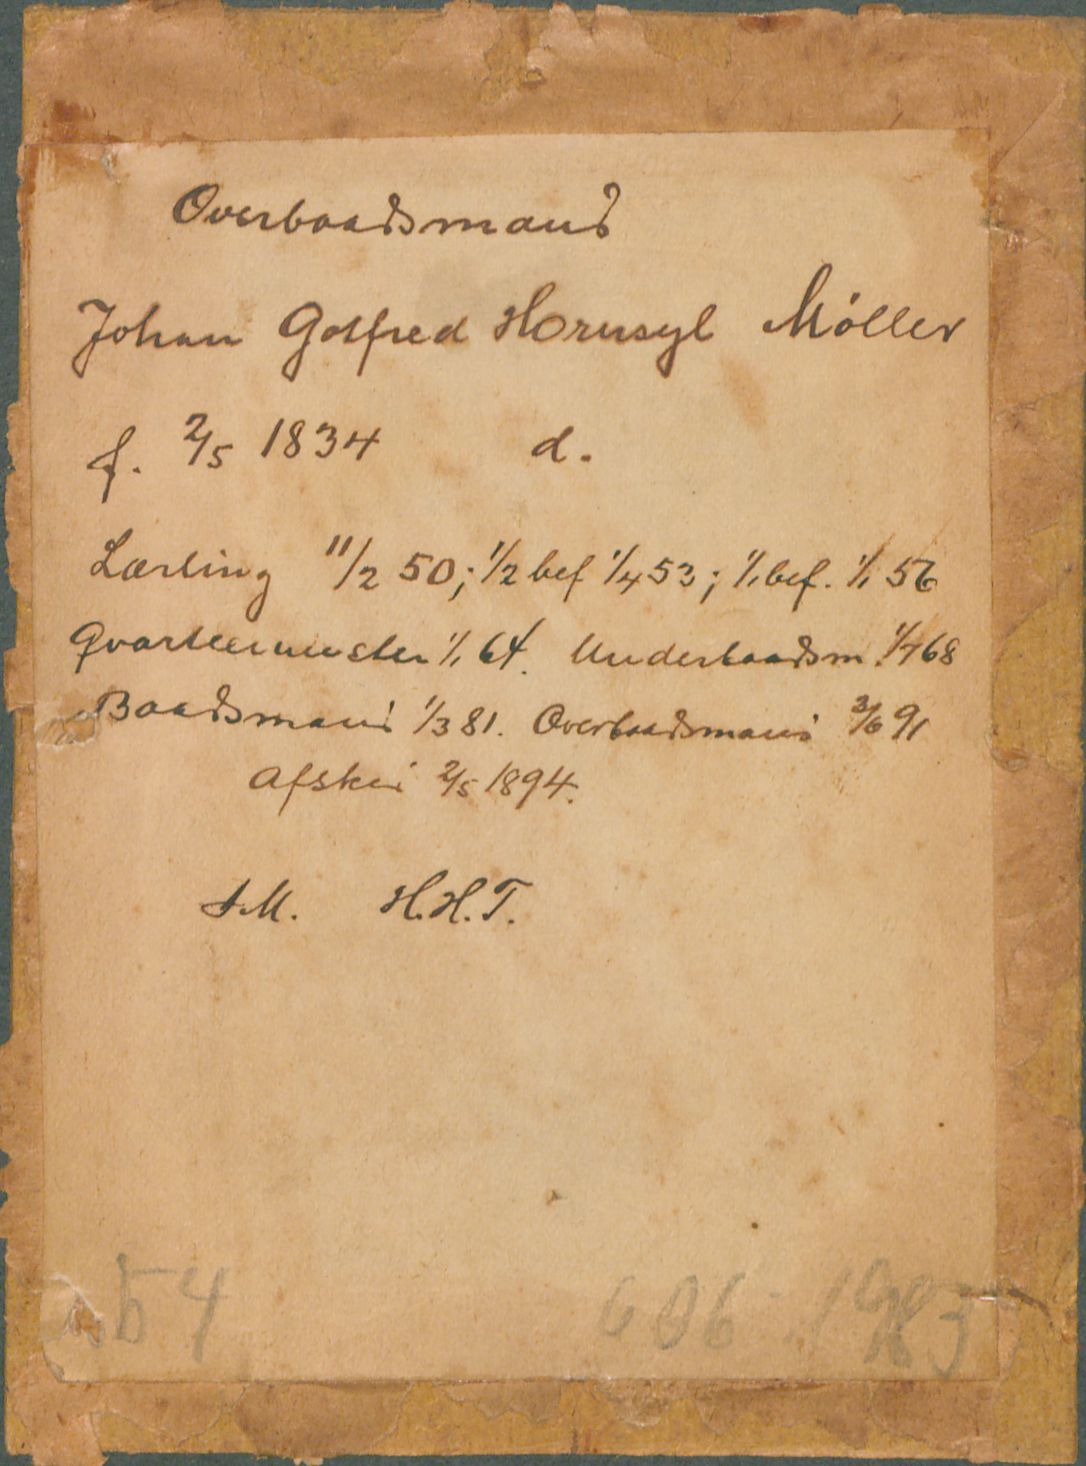 Overbaadsmand
Johan Gotfred Hornsyl Möller
f. 2/5 1834 d.
Lærling 11/2 50; 1/2 bef 1/4 53; 1/1 bef. 1/1 56
Qvarteermester 1/1 64. Underbaadsm. 1/7 68
Baadsmand 1/3 81. Overbaadsmand 3/6 91
Afsked 2/5 1894.
H.H.T.
54
606